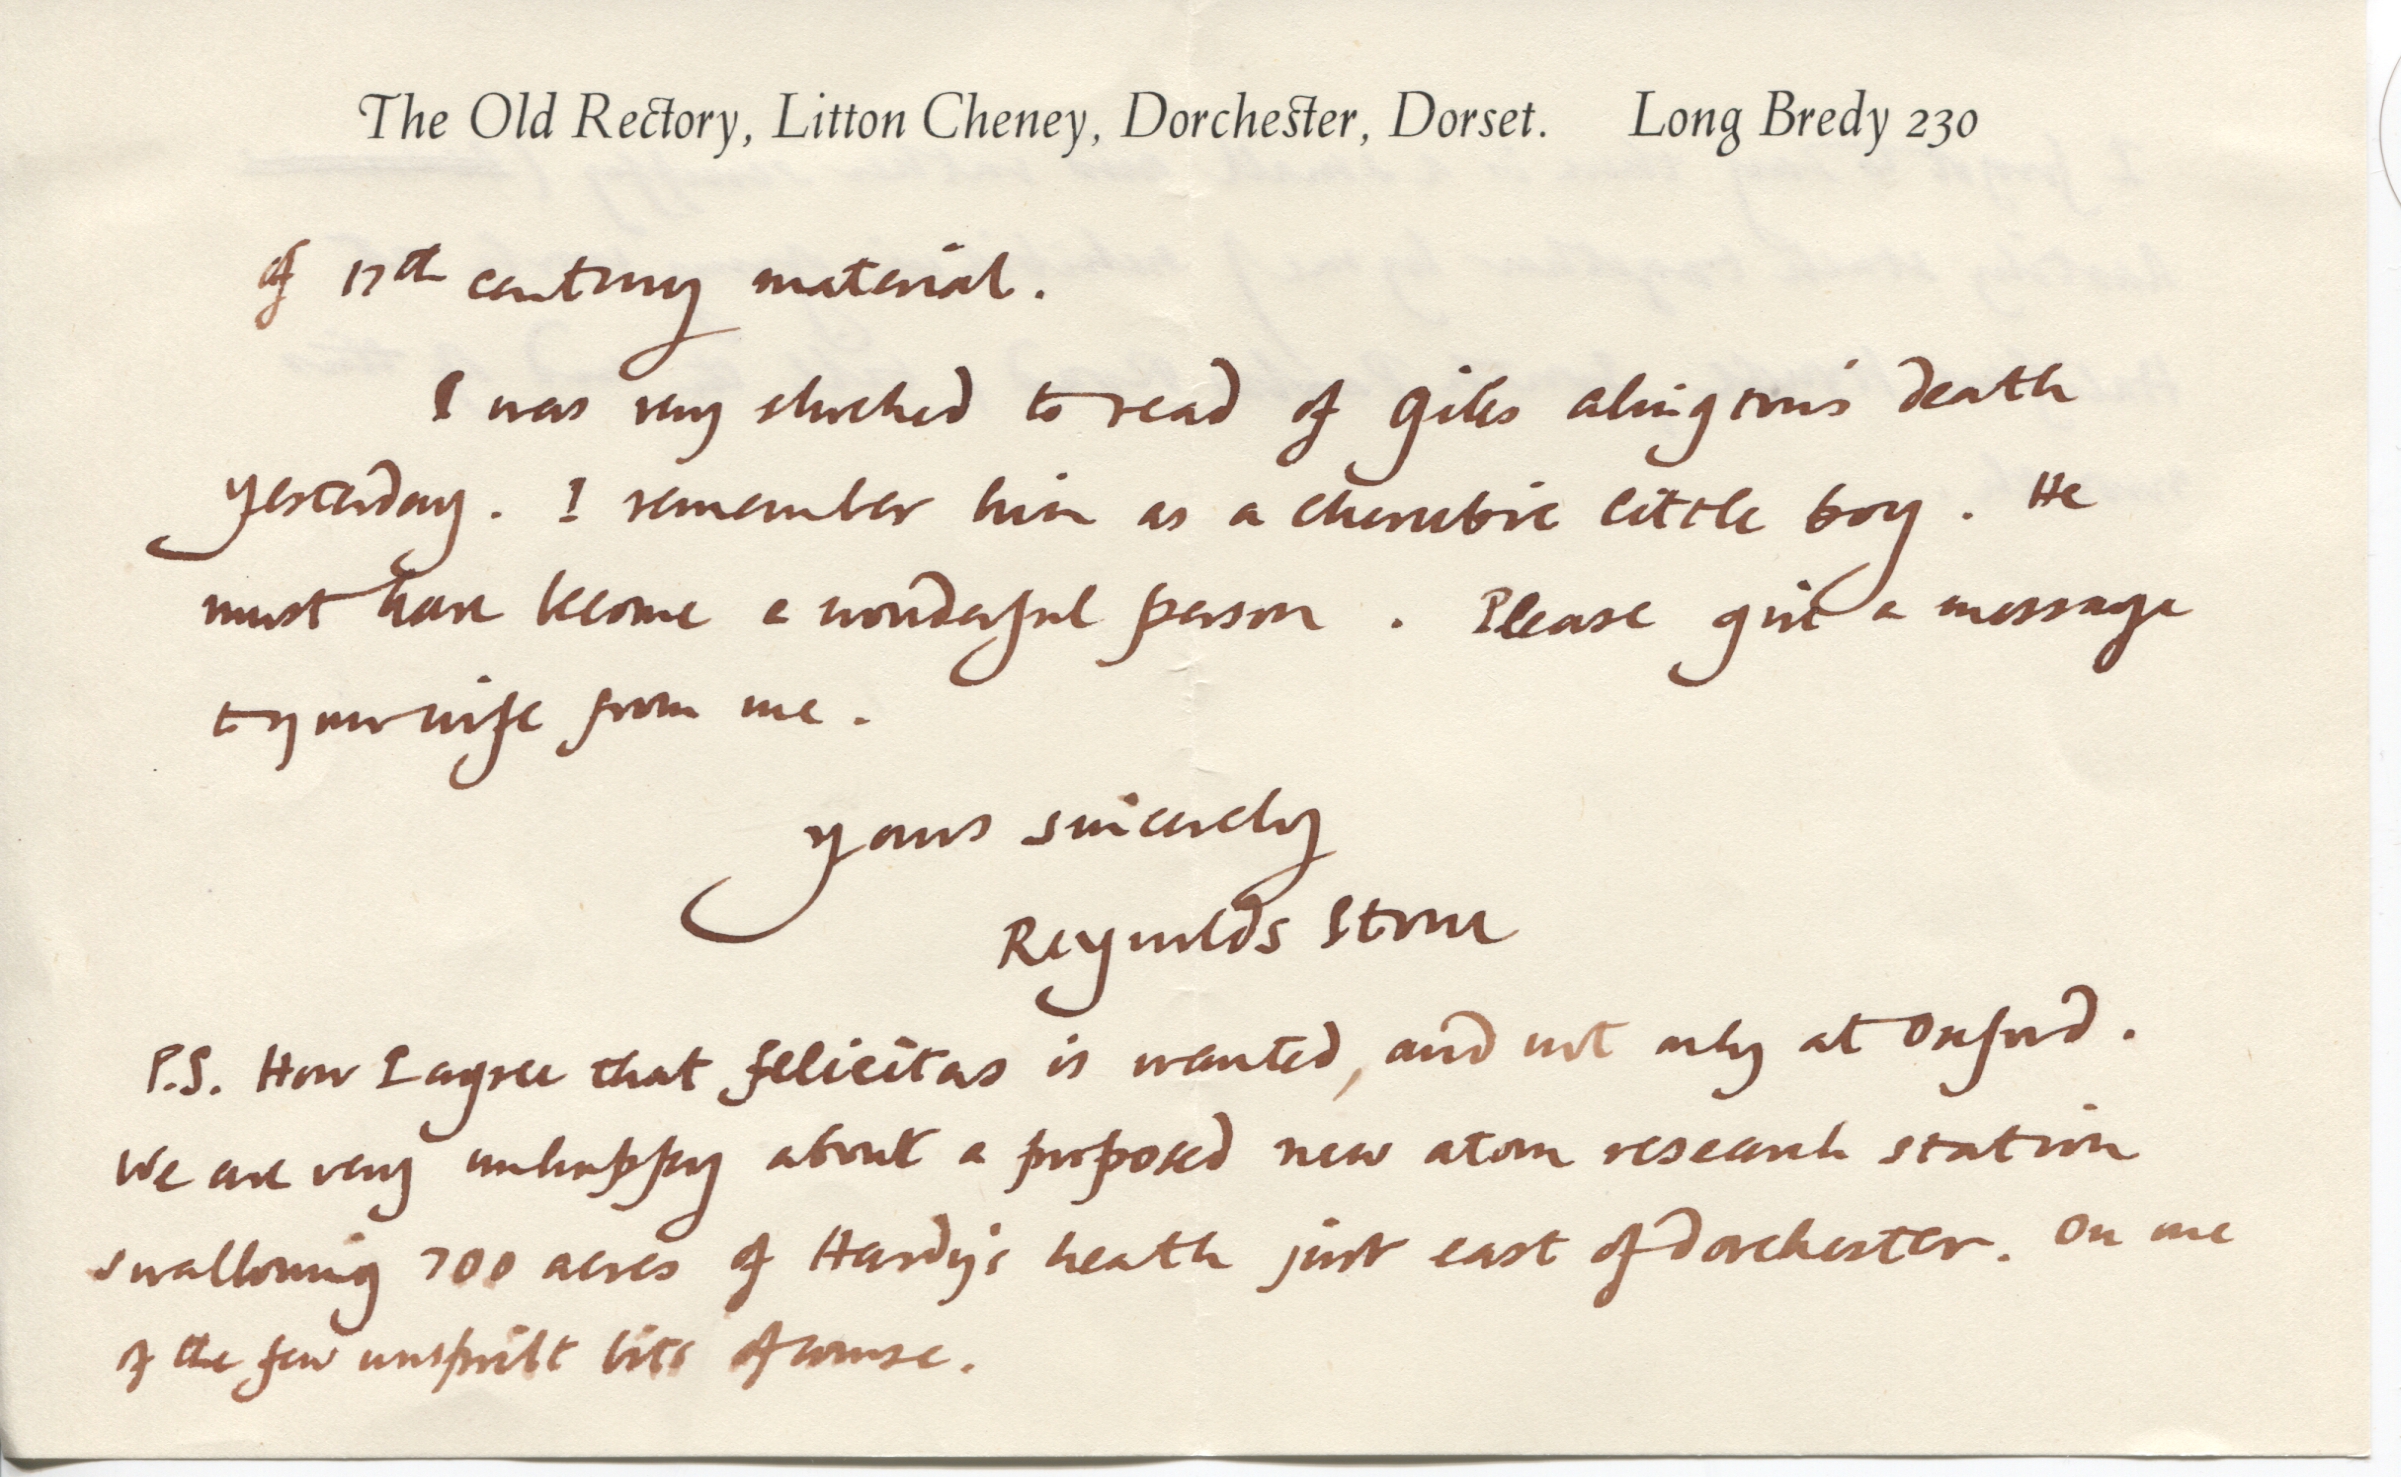 The Old Rectory, Litton Cheney, Dorchester, Dorset. Long Bredy 230
of 17th century material.
I was very shocked to read of Giles Alington's death
yesterday. I remember him as a cherubic little boy. He
must have become a wonderful person. Please give a message
to your wife from me.
Yours sincerely
Reynolds Stone
P.S. How I agree that felicitas is wanted, and not only at Oxford.
We are very unhappy about a proposed new atom research station
swallowing 700 acres of Hardy's heath just east of Dorchester. On one
of the few unspoilt bits of course.